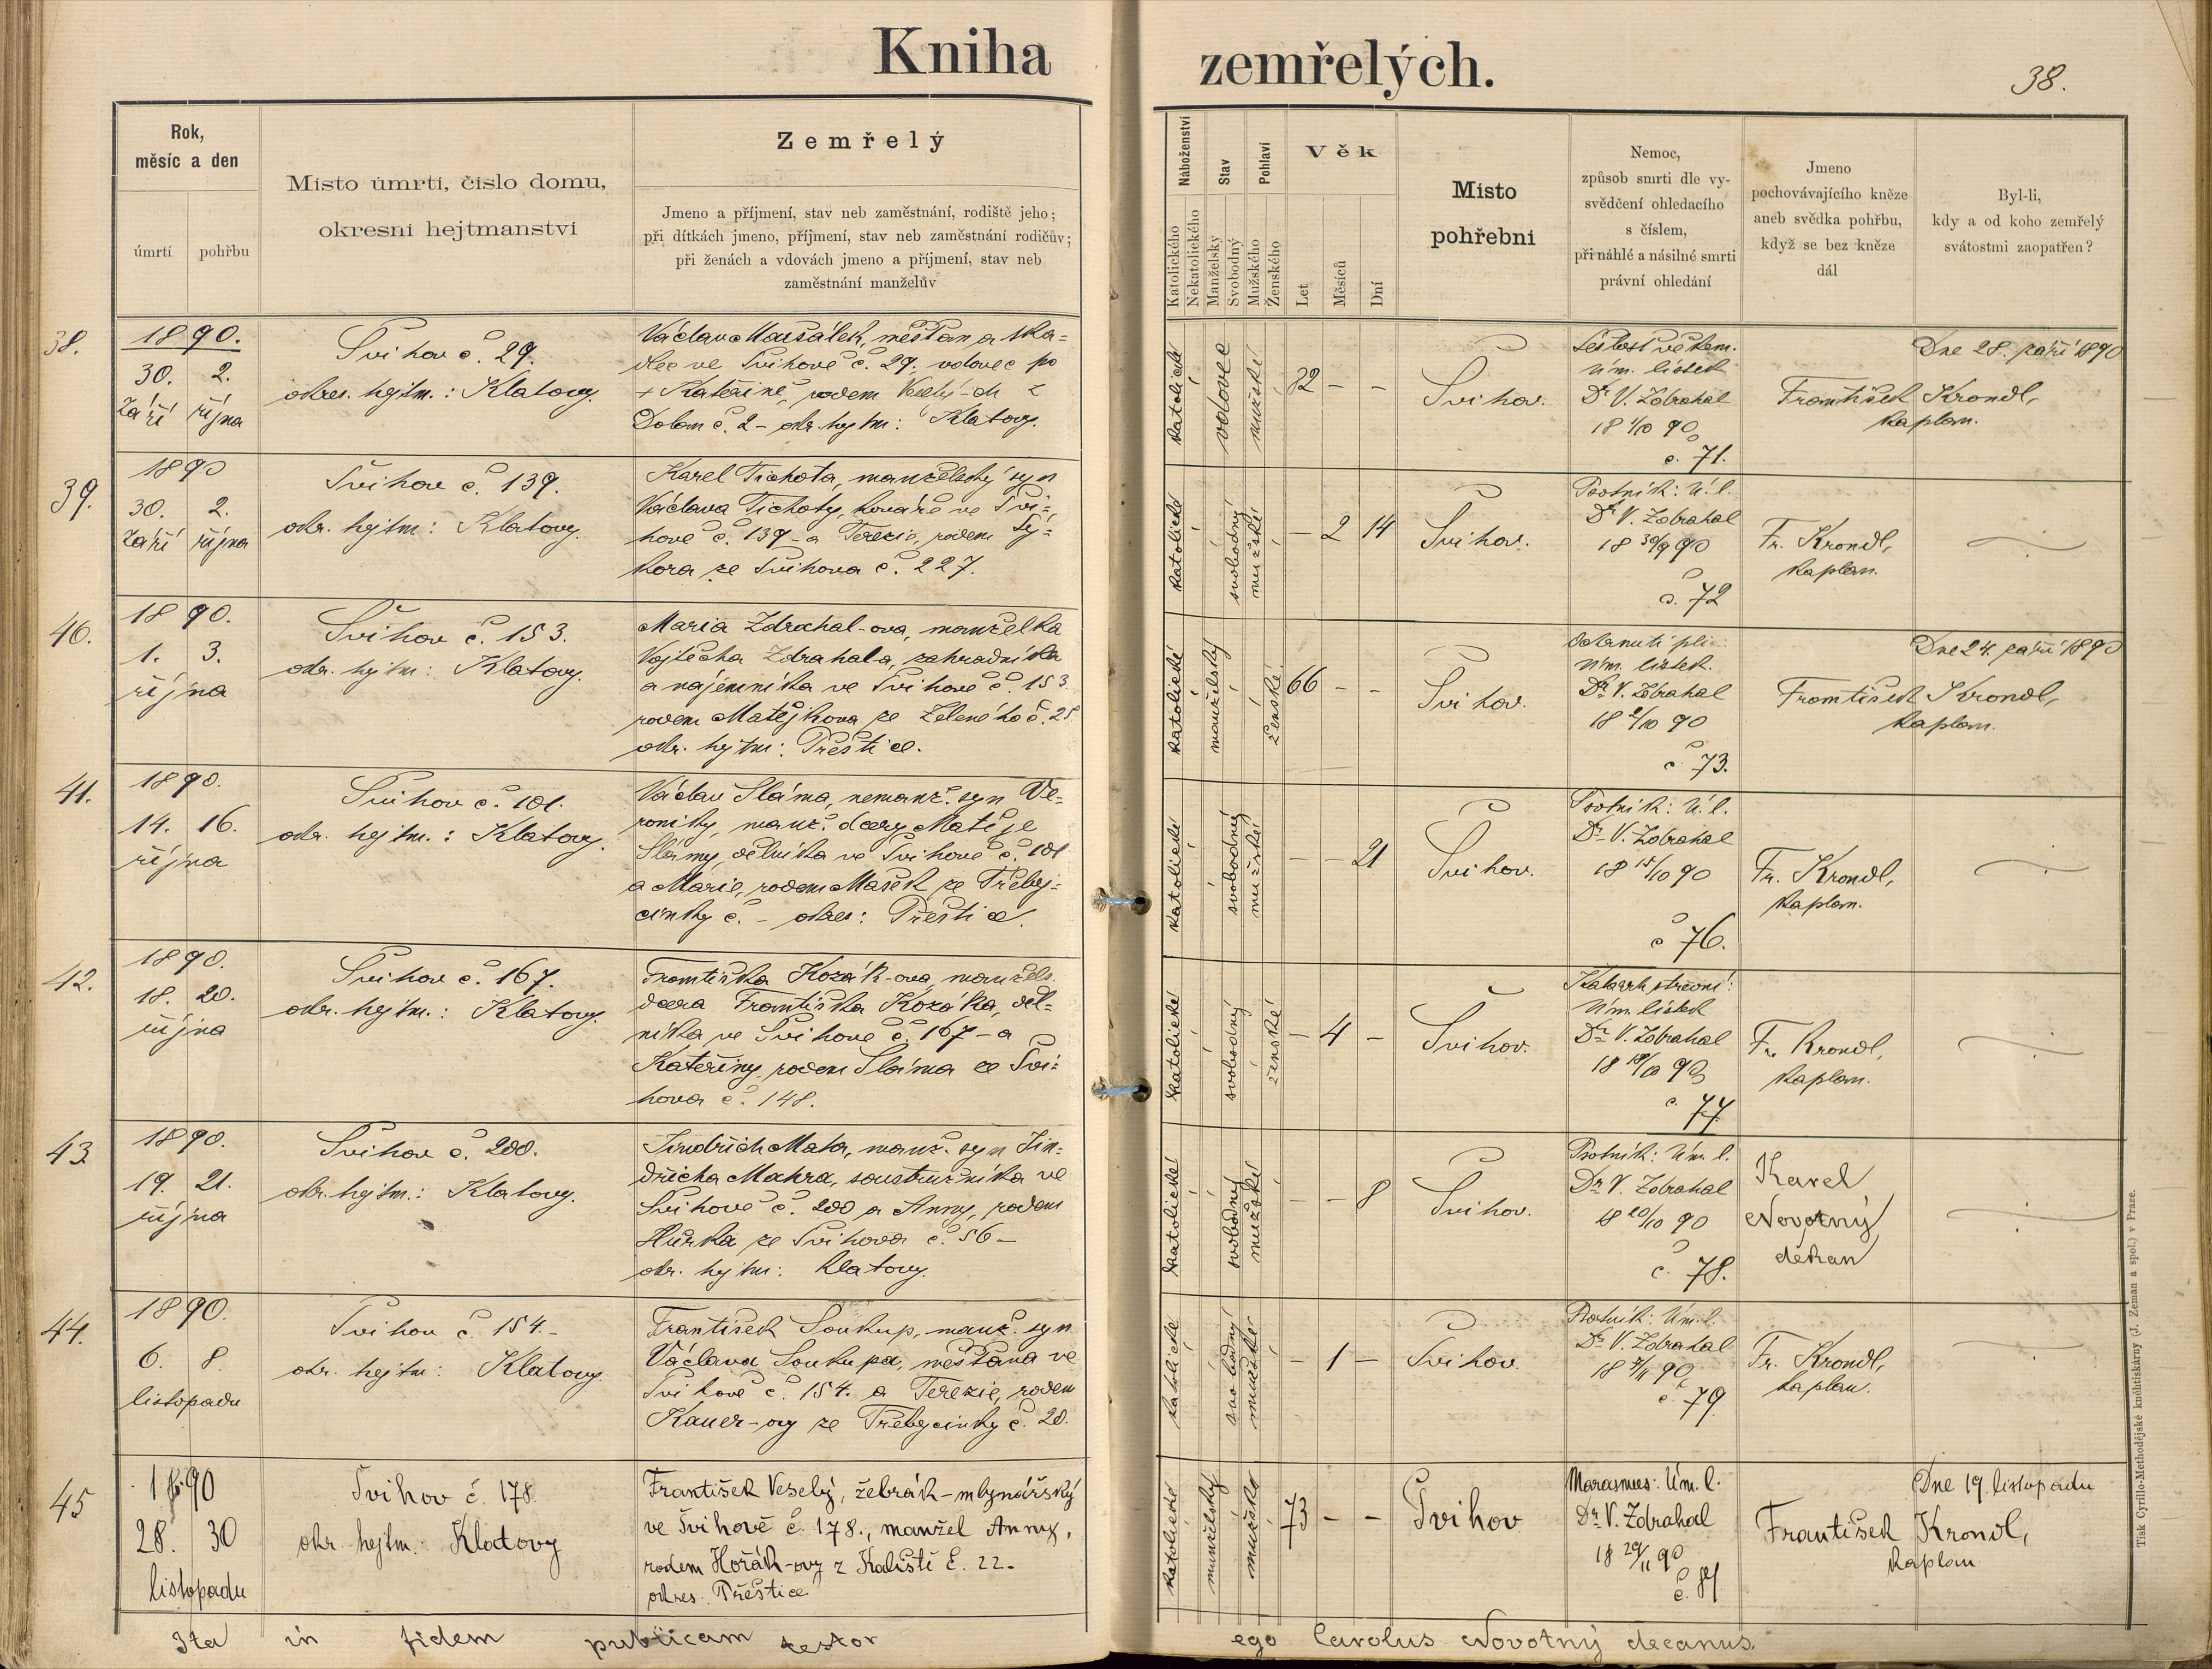 Kniha zemřelých.
38.
Rok,
měsíc a den
úmrtí
pohřbu
Místo úmrtí, číslo domu,
okresní hejtmanství
Zemřelý
Jmeno a příjmení, stav neb zaměstnání, rodiště jeho;
při dítkách jmeno, příjmení, stav neb zaměstnání rodičův;
při ženách a vdovách jmeno a příjmení, stav neb
zaměstnání manželův
Náboženství
Katolického
Nekatolického
Stav
Manželský
Svobodný
Pohlaví
Mužského
Ženského
Věk
Let
Měsíců
Dní
Místo
pohřební
Nemoc,
způsob smrti dle vy-
svědčení ohledacího
s číslem,
při náhlé a násilné smrti
právní ohledání
Jmeno
pochovávajícího kněze
aneb svědka pohřbu,
když se bez kněze
dál
Byl-li,
kdy a od koho zemřelý
svátostmi zaopatřen?
38.
1890.
30. 2.
září října
Švihov č. 29.
okres. hejtm.: Klatovy.
Václav Maršálek, měšťan a tka-
dlec ve Švihově č. 29, vdovec po
+ Kateřině, rodem Veselý-ch z
Dolan č. 2 - okr. hejtm: Klatovy.
katolické
vdovec
mužské
82 - -
Švihov.
Sešlost věkem.
úm. lístek
Dr. V. Zdrahal
18 1/10 90
č. 71.
František Krondl,
kaplan.
Dne 28. září 1890
39.
1890
30. 2.
září října
Švihov č. 139.
okr. hejtm: Klatovy.
Karel Tichota, manželský syn
Václava Tichoty, kováře ve Švi-
hově č. 139 - a Terezie, rodem Sý-
kora ze Švihova č. 227.
katolické
svobodný
mužské
- 2 14
Švihov.
Psotník: ú. l.
Dr V. Zdrahal
18 30/9 90
č. 72
Fr. Krondl,
kaplan.
40.
1890.
1. 3.
října
Švihov č. 153.
okr. hejtm: Klatovy.
Maria Zdrahal-ova, manželka
Vojtěcha Zdrahala, zahradníka
a nájemníka ve Švihově č. 153
rodem Matějkova ze Zeleného č. 25
okr. hejtm: Přeštice.
katolické
manželský
ženské
66 - -
Švihov.
úm. lístek.
Dr. V. Zdrahal
18 2/10 90
č. 73.
František Krondl,
kaplan.
Dne 24. září 1890
41.
1890.
14. 16.
října
Švihov č. 101.
okr. hejtm.: Klatovy.
Václav Sláma, nemanž. syn Ve-
roniky, manž. dcery Matěje
Slámy, dělníka ve Švihově č. 101
a Marie, rodem Mašek ze Třeby-
cinky č. - okres: Přeštice.
katolické
svobodný
mužské
- - 21
Švihov.
Psotník: ú. l.
Dr. V. Zdrahal
18 15/10 90
č 76.
Fr. Krondl,
kaplan.
42.
1890.
18. 20.
října
Švihov č. 167.
okr. hejtm.: Klatovy.
Františka Kozák-ova, manžels.
dcera Františka Kozáka, děl-
níka ve Švihově č. 167 - a
Kateřiny, rodem Sláma ze Švi-
hova č. 148.
katolické
svobodný
ženské
- 4 -
Švihov.
Katarrh střevní:
úm. lístek
Dr. V. Zdrahal
18 19/10 90
č. 77
Fr. Krondl,
kaplan.
43
1890.
19. 21.
října
Švihov č. 200.
okr. hejtm.: Klatovy.
Jindřich Makra, manž. syn Jin-
dřicha Makra, soustružníka ve
Švihově č. 200 a Anny, rodem
Hůrka ze Švihova č. 56 -
okr. hejtm: Klatovy.
katolické
svobodný
mužské
- - 8
Švihov.
Psotník: úm. l.
Dr. V. Zdrahal
18 20/10 90
č. 78.
Karel
Novotný
děkan
44.
1890.
6. 8.
listopadu
Švihov č. 154. -
okr. hejtm: Klatovy.
František Soukup, manž. syn
Václava Soukupa, měšťana ve
Švihově č. 154. a Terezie, rodem
Kauer-ovy ze Třebycinky č. 20.
katolické
svobodný
mužské
- 1 -
Švihov.
Psotník: úm. l.
Dr. V. Zdrahal
18 7/11 90
č. 79
Fr. Krondl,
kaplan.
45
1890
28. 30
listopadu
Švihov č. 178
okr. hejtm. Klatovy
František Veselý, žebrák - mlynářský
ve Švihově č. 178., manžel Anny,
rodem Hořák-ovy z Kaliště č. 22 -
okres. Přeštice
katolické
manželský
mužské
73 - -
Švihov
Marasmus: úm. l.
Dr. V. Zdrahal
18 29/11 90
František Krondl,
kaplan
Dne 19. listopadu
Ita in fidem publicam testor ego Carolus Novotný decanus.
Tisk Cyrillo-Methodějské knihtiskárny (J. Zeman a spol.) v Praze.